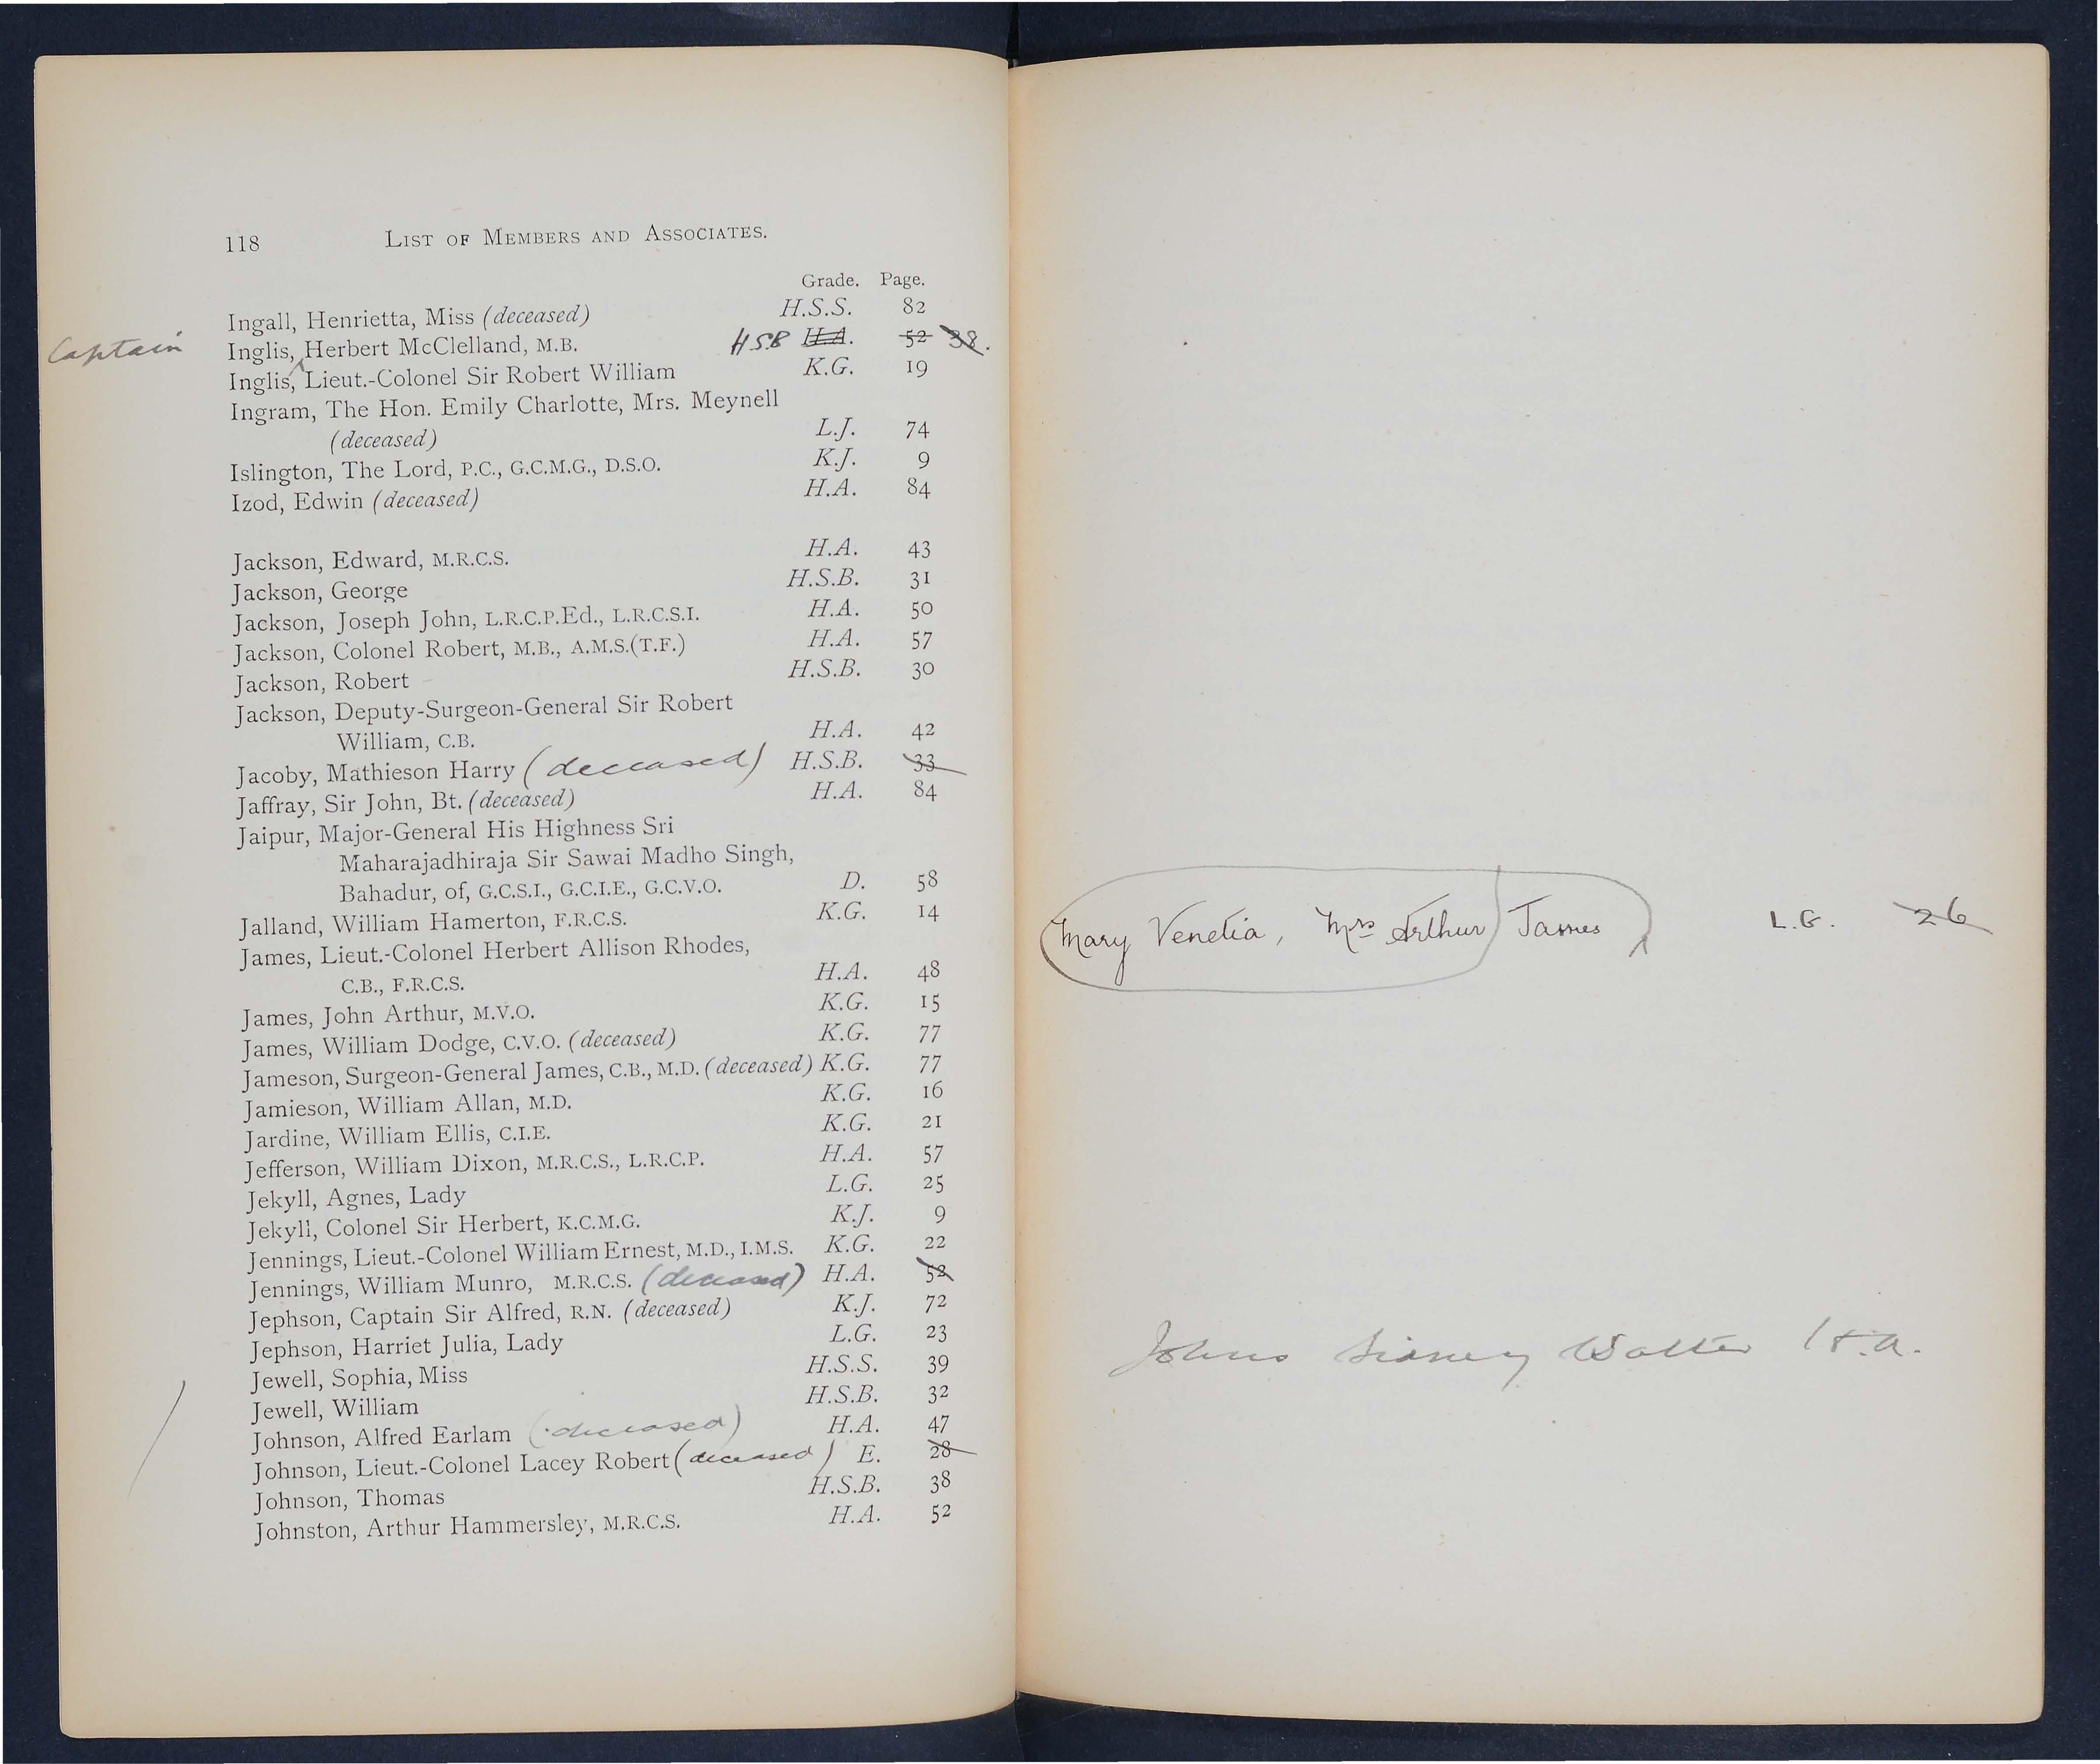 118 LIST OF MEMBERS AND ASSOCIATES.
Grade. Page.
Ingall, Henrietta, Miss (deceased) H.S.S. 82
Captain Inglis, Herbert McClelland, M.B. HSB H.A. 52 38.
Inglis, Lieut.-Colonel Sir Robert William K.G. 19
Ingram, The Hon. Emily Charlotte, Mrs. Meynell
(deceased) L.J. 74
Islington, The Lord, P.C., G.C.M.G., D.S.O. K.J. 9
Izod, Edwin (deceased) H.A. 84
Jackson, Edward, M.R.C.S. H.A. 43
Jackson, George H.S.B. 31
Jackson, Joseph John, L.R.C.P.Ed., L.R.C.S.I. H.A. 50
Jackson, Colonel Robert, M.B., A.M.S.(T.F.) H.A. 57
Jackson, Robert H.S.B. 30
Jackson, Deputy-Surgeon-General Sir Robert
William, C.B. H.A. 42
Jacoby, Mathieson Harry (deceased) H.S.B. 33
Jaffray, Sir John, Bt. (deceased) H.A. 84
Jaipur, Major-General His Highness Sri
Maharajadhiraja Sir Sawai Madho Singh,
Bahadur, of, G.C.S.I., G.C.I.E., G.C.V.O. D. 58
Jalland, William Hamerton, F.R.C.S. K.G. 14
James, Lieut.-Colonel Herbert Allison Rhodes,
C.B., F.R.C.S. H.A. 48
James, John Arthur, M.V.O. K.G. 15
James, William Dodge, C.V.O. (deceased) K.G. 77
Jameson, Surgeon-General James, C.B., M.D. (deceased) K.G. 77
Jamieson, William Allan, M.D. K.G. 16
Jardine, William Ellis, C.I.E. K.G. 21
Jefferson, William Dixon, M.R.C.S., L.R.C.P. H.A. 57
Jekyll, Agnes, Lady L.G. 25
Jekyll, Colonel Sir Herbert, K.C.M.G. K.J. 9
Jennings, Lieut.-Colonel William Ernest, M.D., I.M.S. K.G. 22
Jennings, William Munro, M.R.C.S. (deceased) H.A. 52
Jephson, Captain Sir Alfred, R.N. (deceased) K.J. 72
Jephson, Harriet Julia, Lady L.G. 23
Jewell, Sophia, Miss H.S.S. 39
Jewell, William H.S.B. 32
Johnson, Alfred Earlam (deceased) H.A. 47
Johnson, Lieut.-Colonel Lacey Robert (deceased) E. 28
Johnson, Thomas H.S.B. 38
Johnston, Arthur Hammersley, M.R.C.S. H.A. 52
Mary Venetia, Mrs Arthur) James L.G. 26
Johns Sidney Walter H.A.